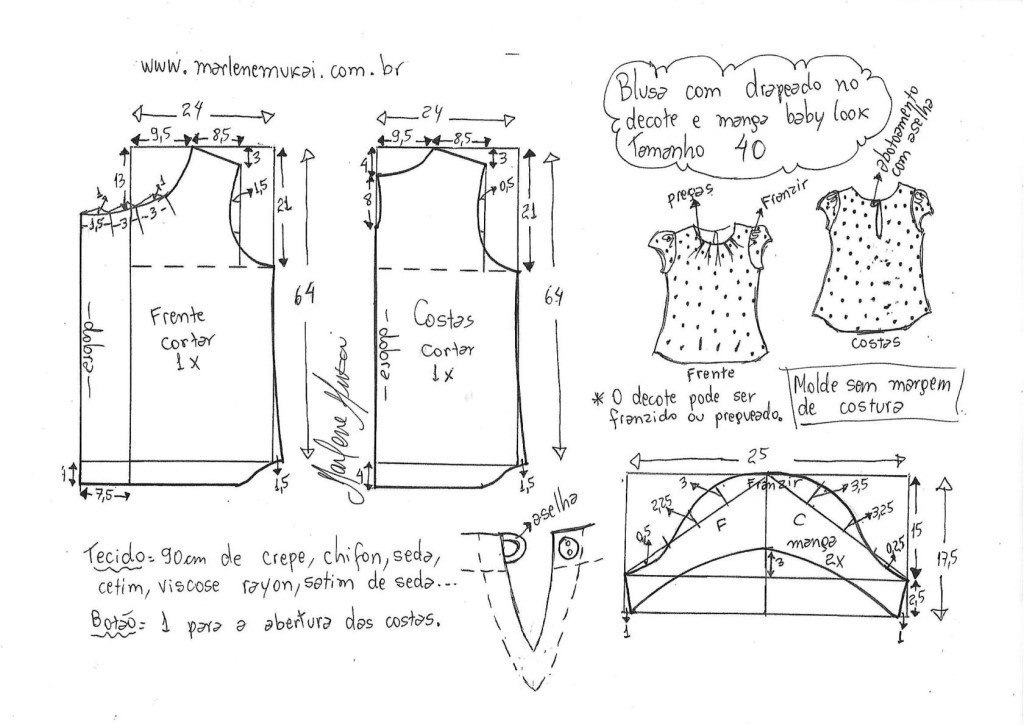 www.marlenemukai.com.br
Blusa com drapeado no
decote e manga baby look
Tamanho 40
24
9,5
8,5
3
13
1
1
1,5
3
3
1,5
21
64
Frente
cortar
1x
dobra
7,5
1,5
24
9,5
8,5
4
3
8
0,5
21
64
Costas
cortar
1x
dobra
4
1,5
Marlene Mukai
pregas
Franzir
abotoamento
com aselha
Frente
costas
* O decote pode ser
franzido ou pregueado.
Molde sem margem
de costura
25
Franzir
3
3,5
2,25
3,25
0,5
0,25
F
C
manga
2x
3
15
17,5
2,5
1
1
aselha
Tecido= 90cm de crepe, chifon, seda,
cetim, viscose rayon, satim de seda...
Botão= 1 para a abertura das costas.